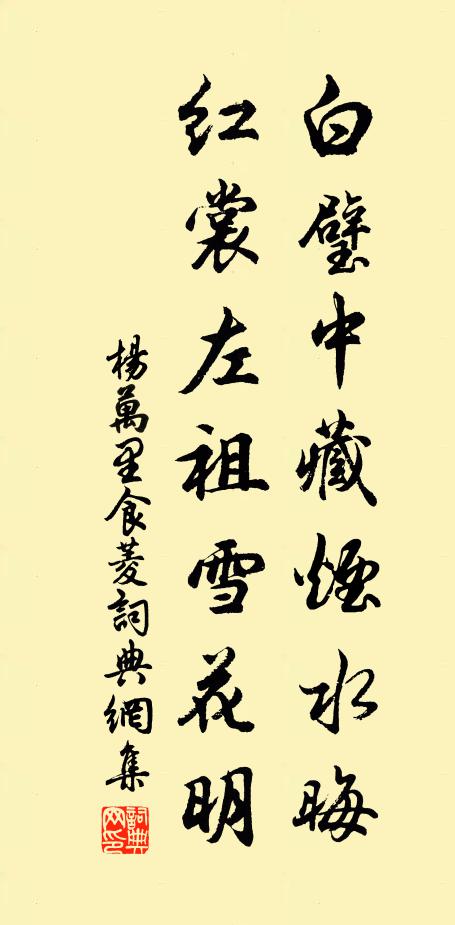 白璧中藏煙水晦
紅裳左祖雪花明
楊萬里食菱詞典網集
詞典網印